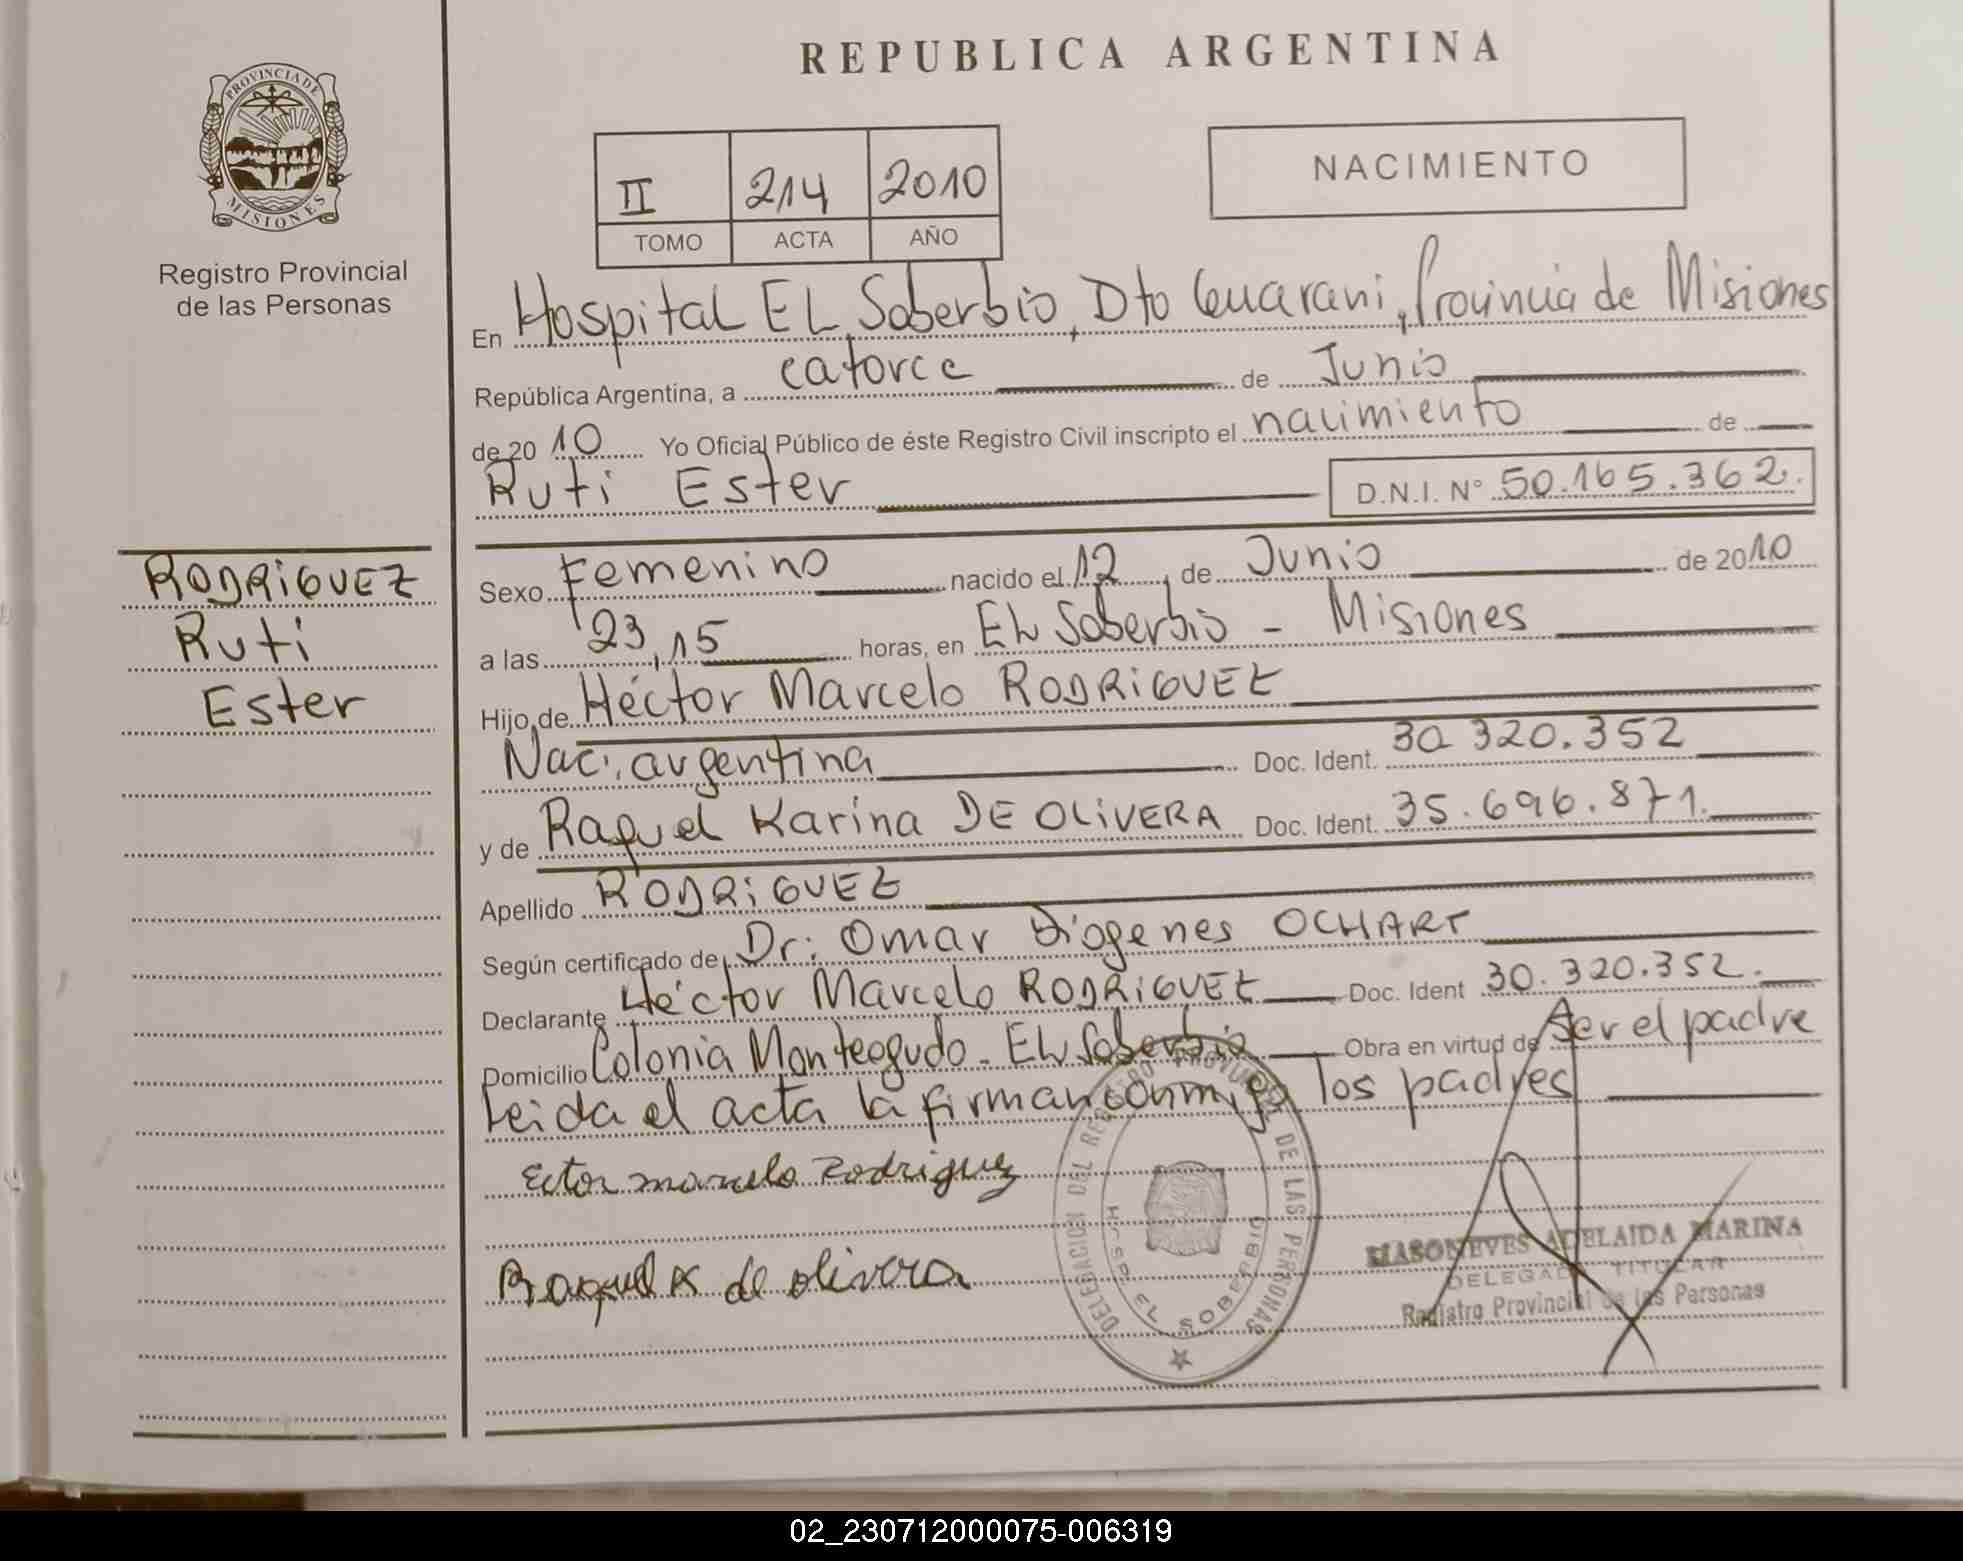 REPUBLICA ARGENTINA
PROVINCIA DE
MISIONES
Registro Provincial
de las Personas
II 214 2010
TOMO ACTA AÑO
NACIMIENTO
En Hospital EL Soberbio, Dto Guarani, Provincia de Misiones
República Argentina, a catorce de Junio
de 2010 Yo Oficial Público de éste Registro Civil inscripto el nacimiento de
Ruti Ester D.N.I. N° 50.165.362.
RODRIGUEZ
Ruti
Ester
Sexo Femenino nacido el 12 de Junio de 2010
a las 23,15 horas, en EL Soberbio - Misiones
Hijo de Héctor Marcelo RODRIGUEZ
Nac. argentina Doc. Ident. 30 320.352
y de Raquel Karina DE OLIVERA Doc. Ident. 35.696.871.
Apellido RODRIGUEZ
Según certificado de Dr: Omar Diogenes OCHART
Declarante Héctor Marcelo RODRIGUEZ Doc. Ident 30.320.352.
Domicilio Colonia Monteagudo - EL Soberbio Obra en virtud de Ser el padre
Leida el acta la firman conmigo los padres
Ector marcelo Rodriguez
Raquel K de olivera
DELEGACION DEL REGISTRO PROVINCIAL DE LAS PERSONAS
HOSP. EL SOBERBIO
MASONEVES ADELAIDA MARINA
DELEGADA TITULAR
Registro Provincial de las Personas
02_230712000075-006319